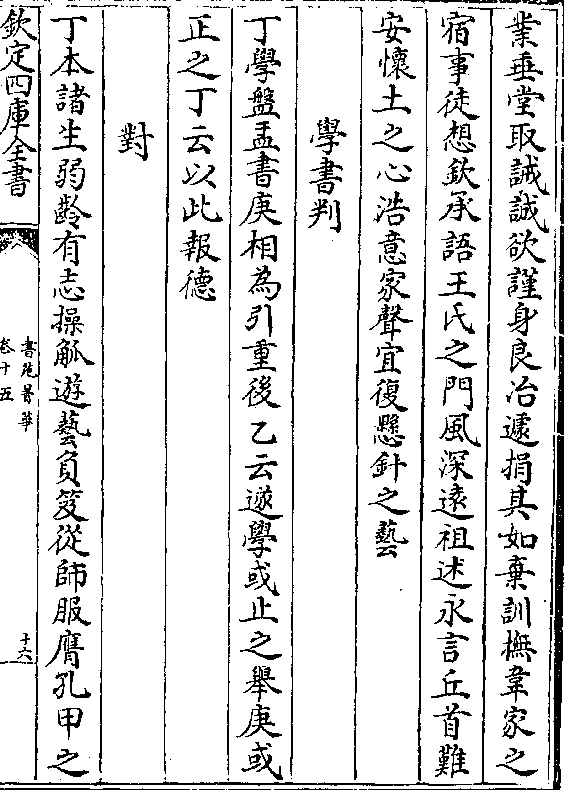 業垂堂取誡誠欲謹身良冶遽捐其如棄訓撫韋家之
宿事徒想欽承語王氏之門風深遠祖述永言丘首難
安懷土之心浩意家聲宜復懸針之藝
學書判
丁學盤盂書庚相為引重後乙云遂學或止之舉庚或
正之丁云以此報德
對
丁本諸生弱齡有志操觚遊藝負笈從師服膺孔甲之
欽定四庫全書
書苑菁華
卷十五
十六